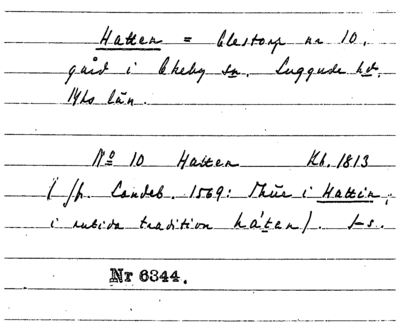 Hatten = Clestorp nr 10,
gård i Ekeby sn. Luggude hd.
Mhs län.
No 10 Hatten Kb. 1813
(Jfr. Landeb. 1569: Thue i Hattin,
i nutida tradition há'tan). I-s.
Nr 6344.